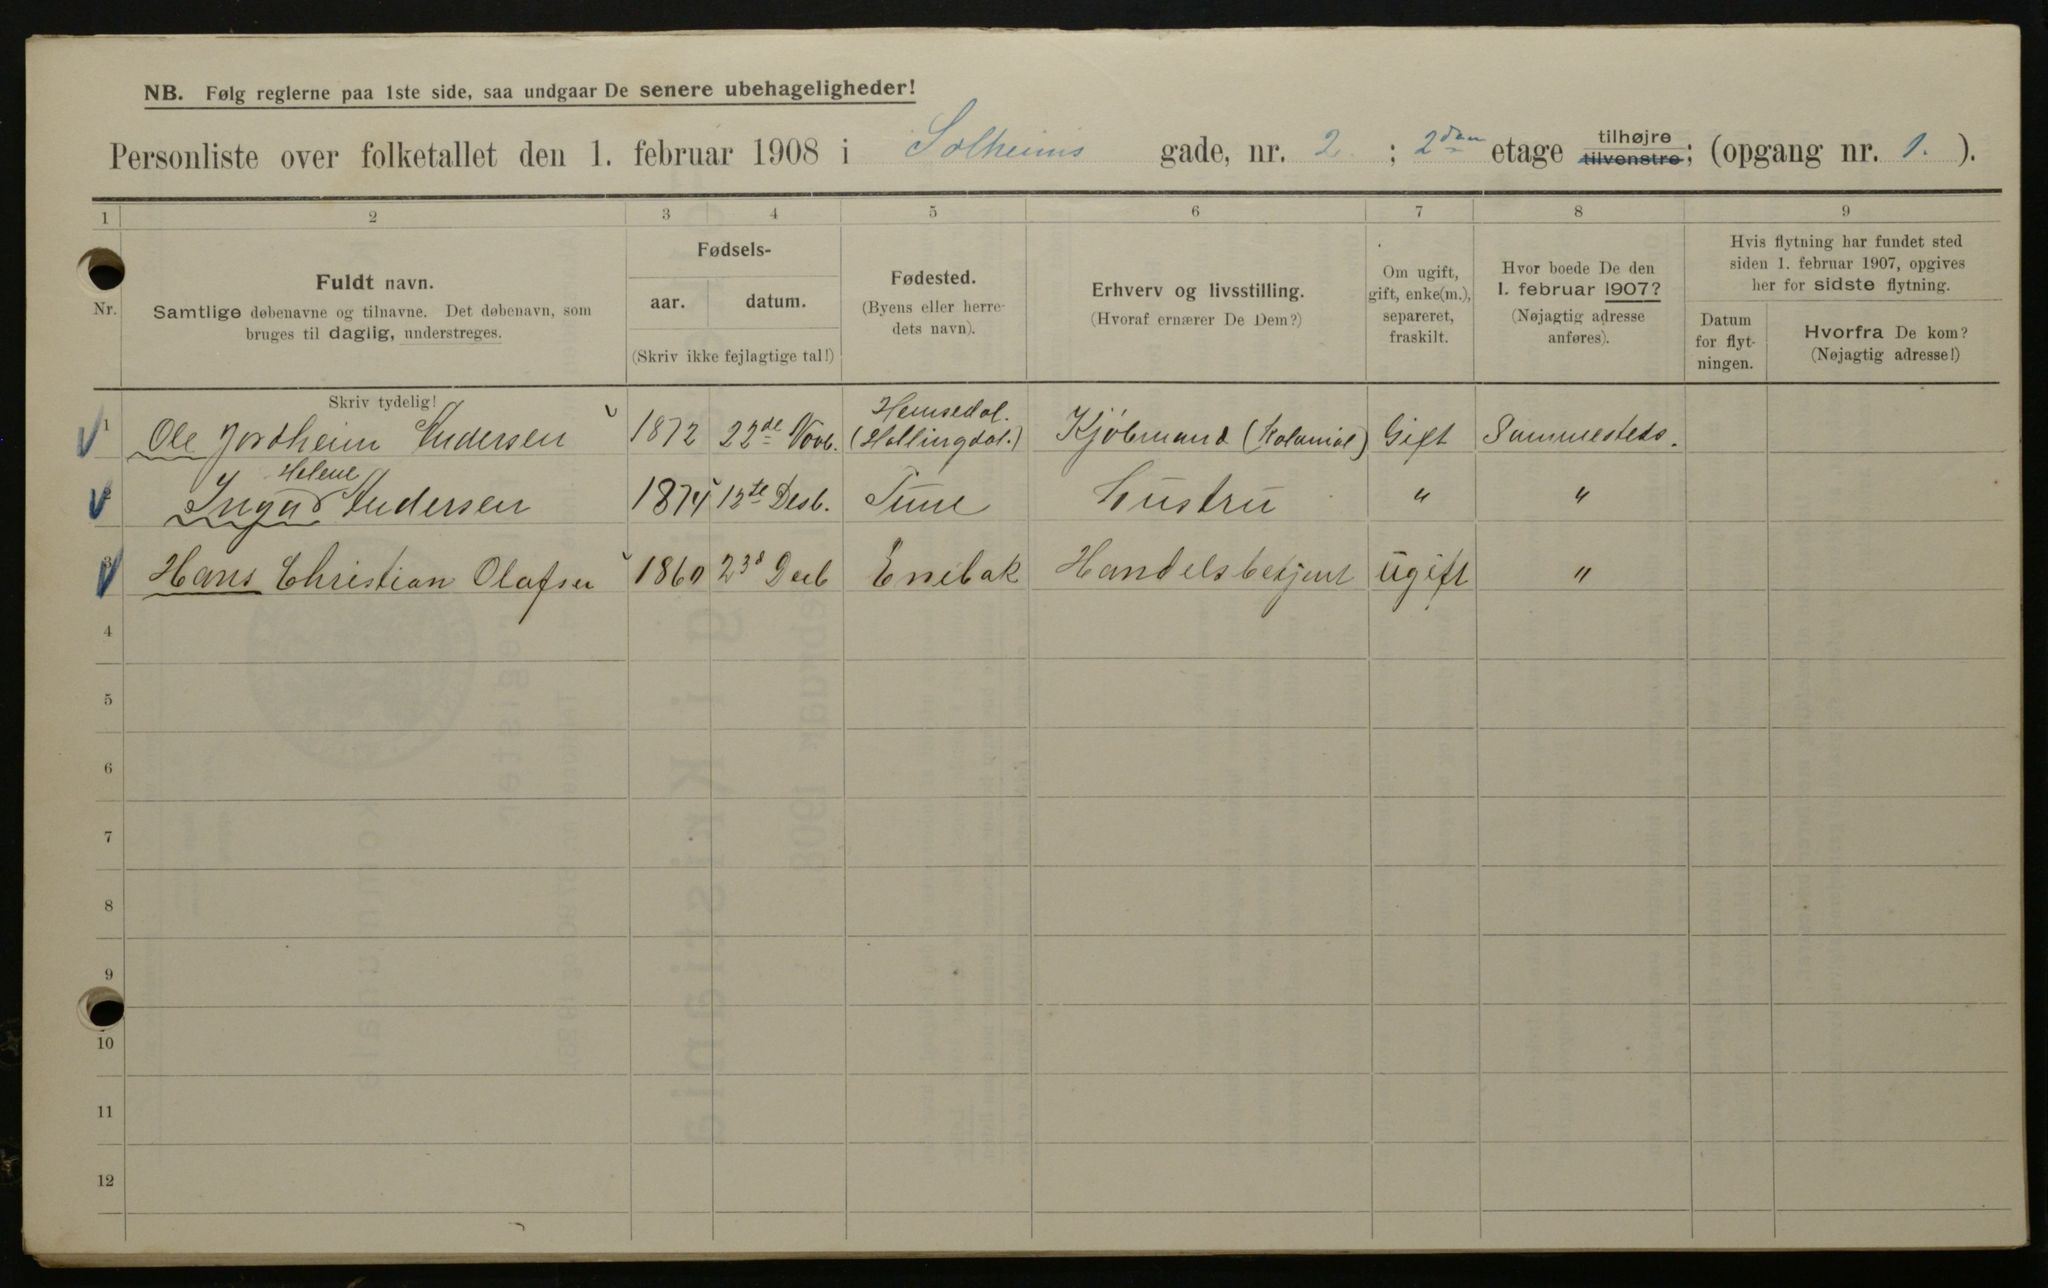 NB. Følg reglerne paa 1ste side, saa undgaar De senere ubehageligheder!
Personliste over folketallet den 1. februar 1908 i Solheims gade, nr. 2 ; 2den etage tilhøjre tilvenstre; (opgang nr. 1. ).
1 2 3 4 5 6 7 8 9
Nr.
Fuldt navn.
Samtlige døbenavne og tilnavne. Det døbenavn, som
bruges til daglig, understreges.
Skriv tydelig!
Fødsels-
aar. datum.
(Skriv ikke fejlagtige tal!)
Fødested.
(Byens eller herre-
dets navn).
Erhverv og livsstilling.
(Hvoraf ernærer De Dem?)
Om ugift,
gift, enke(m.),
separeret,
fraskilt.
Hvor boede De den
1. februar 1907?
(Nøjagtig adresse
anføres).
Hvis flytning har fundet sted
siden 1. februar 1907, opgives
her for sidste flytning.
Datum
for flyt-
ningen.
Hvorfra De kom?
(Nøjagtig adresse!)
Hemsedal.
1 Ole Jordheim Andersen 1872 22de Novb. (Hallingdal.) Kjöbmand (Kolonial) Gift Sammesteds.
Helene
2 Inga Andersen 1874 12te Desb. Tune Hustru " "
3 Hans Christian Olafsen 1860 23d Decb Enebak Handelsbetjent ugift "
4
5
6
7
8
9
10
11
12